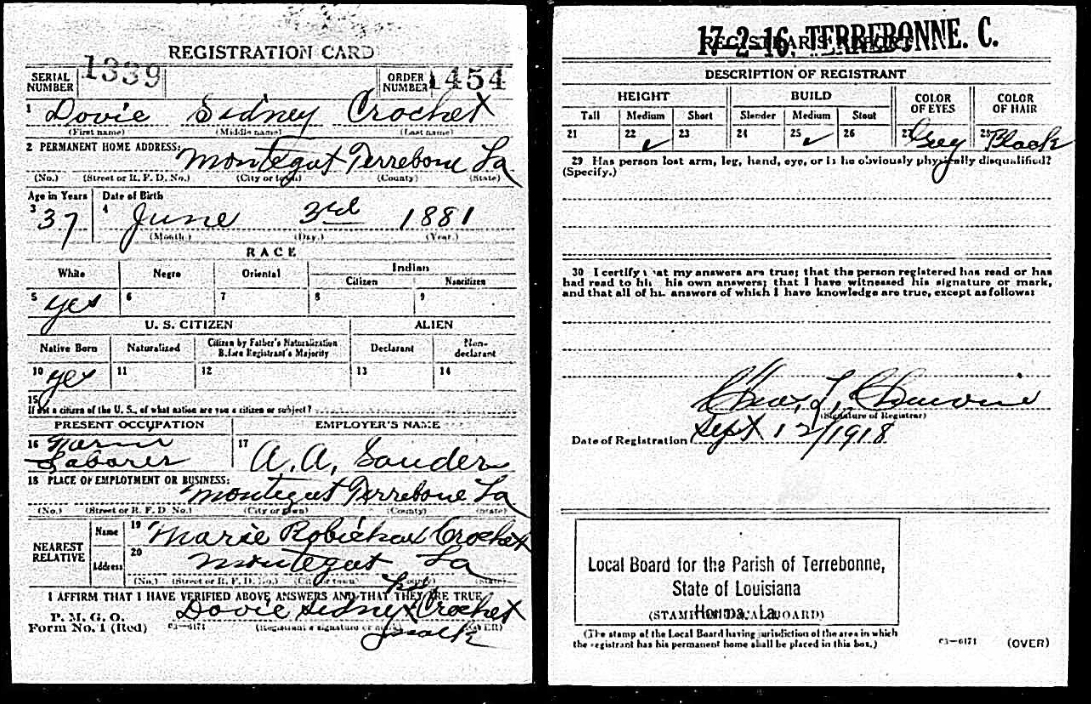 REGISTRATION CARD
SERIAL NUMBER 1339 ORDER NUMBER 1454
1 Dovie Sidney Crochet
(First name) (Middle name) (Last name)
2 PERMANENT HOME ADDRESS:
Montegut Terrebone La
(No.) (Street or R. F. D. No.) (City or town) (County) (State)
Age in Years Date of Birth
3 37 4 June 3rd 1881
(Month.) (Day.) (Year.)
RACE
White Negro Oriental Indian
Citizen Noncitizen
5 yes 6 7 8 9
U. S. CITIZEN ALIEN
Native Born Naturalized Citizen by Father's Naturalization Before Registrant's Majority Declarant Non-declarant
10 yes 11 12 13 14
15
If not a citizen of the U. S., of what nation are you a citizen or subject?
PRESENT OCCUPATION EMPLOYER'S NAME
16 Farm Laborer 17 A. A. Sanders
18 PLACE OF EMPLOYMENT OR BUSINESS:
Montegut Terrebone La
(No.) (Street or R. F. D. No.) (City or town) (County) (State)
NEAREST RELATIVE
Name 19 Marie Robichaux Crochet
Address 20 Montegut La
(No.) (Street or R. F. D. No.) (City or town) (County) (State)
I AFFIRM THAT I HAVE VERIFIED ABOVE ANSWERS AND THAT THEY ARE TRUE
P. M. G. O.
Form No. 1 (Red) 03—6171
Dovie Sidney Crochet
(Registrant's signature or mark) (OVER)
mark
17-2-16. TERREBONNE. C.
REGISTRAR'S REPORT
DESCRIPTION OF REGISTRANT
HEIGHT BUILD COLOR OF EYES COLOR OF HAIR
Tall Medium Short Slender Medium Stout
21 22 ✓ 23 24 25 ✓ 26 27 Grey 28 Black
29 Has person lost arm, leg, hand, eye, or is he obviously physically disqualified?
(Specify.)
30 I certify that my answers are true; that the person registered has read or has
had read to him his own answers; that I have witnessed his signature or mark,
and that all of his answers of which I have knowledge are true, except as follows:
Chas. L.
(Signature of Registrar)
Date of Registration Sept 12/1918
Local Board for the Parish of Terrebonne,
State of Louisiana
Houma, La.
(STAMP OF LOCAL BOARD)
(The stamp of the Local Board having jurisdiction of the area in which
the registrant has his permanent home shall be placed in this box.)
03—6171 (OVER)